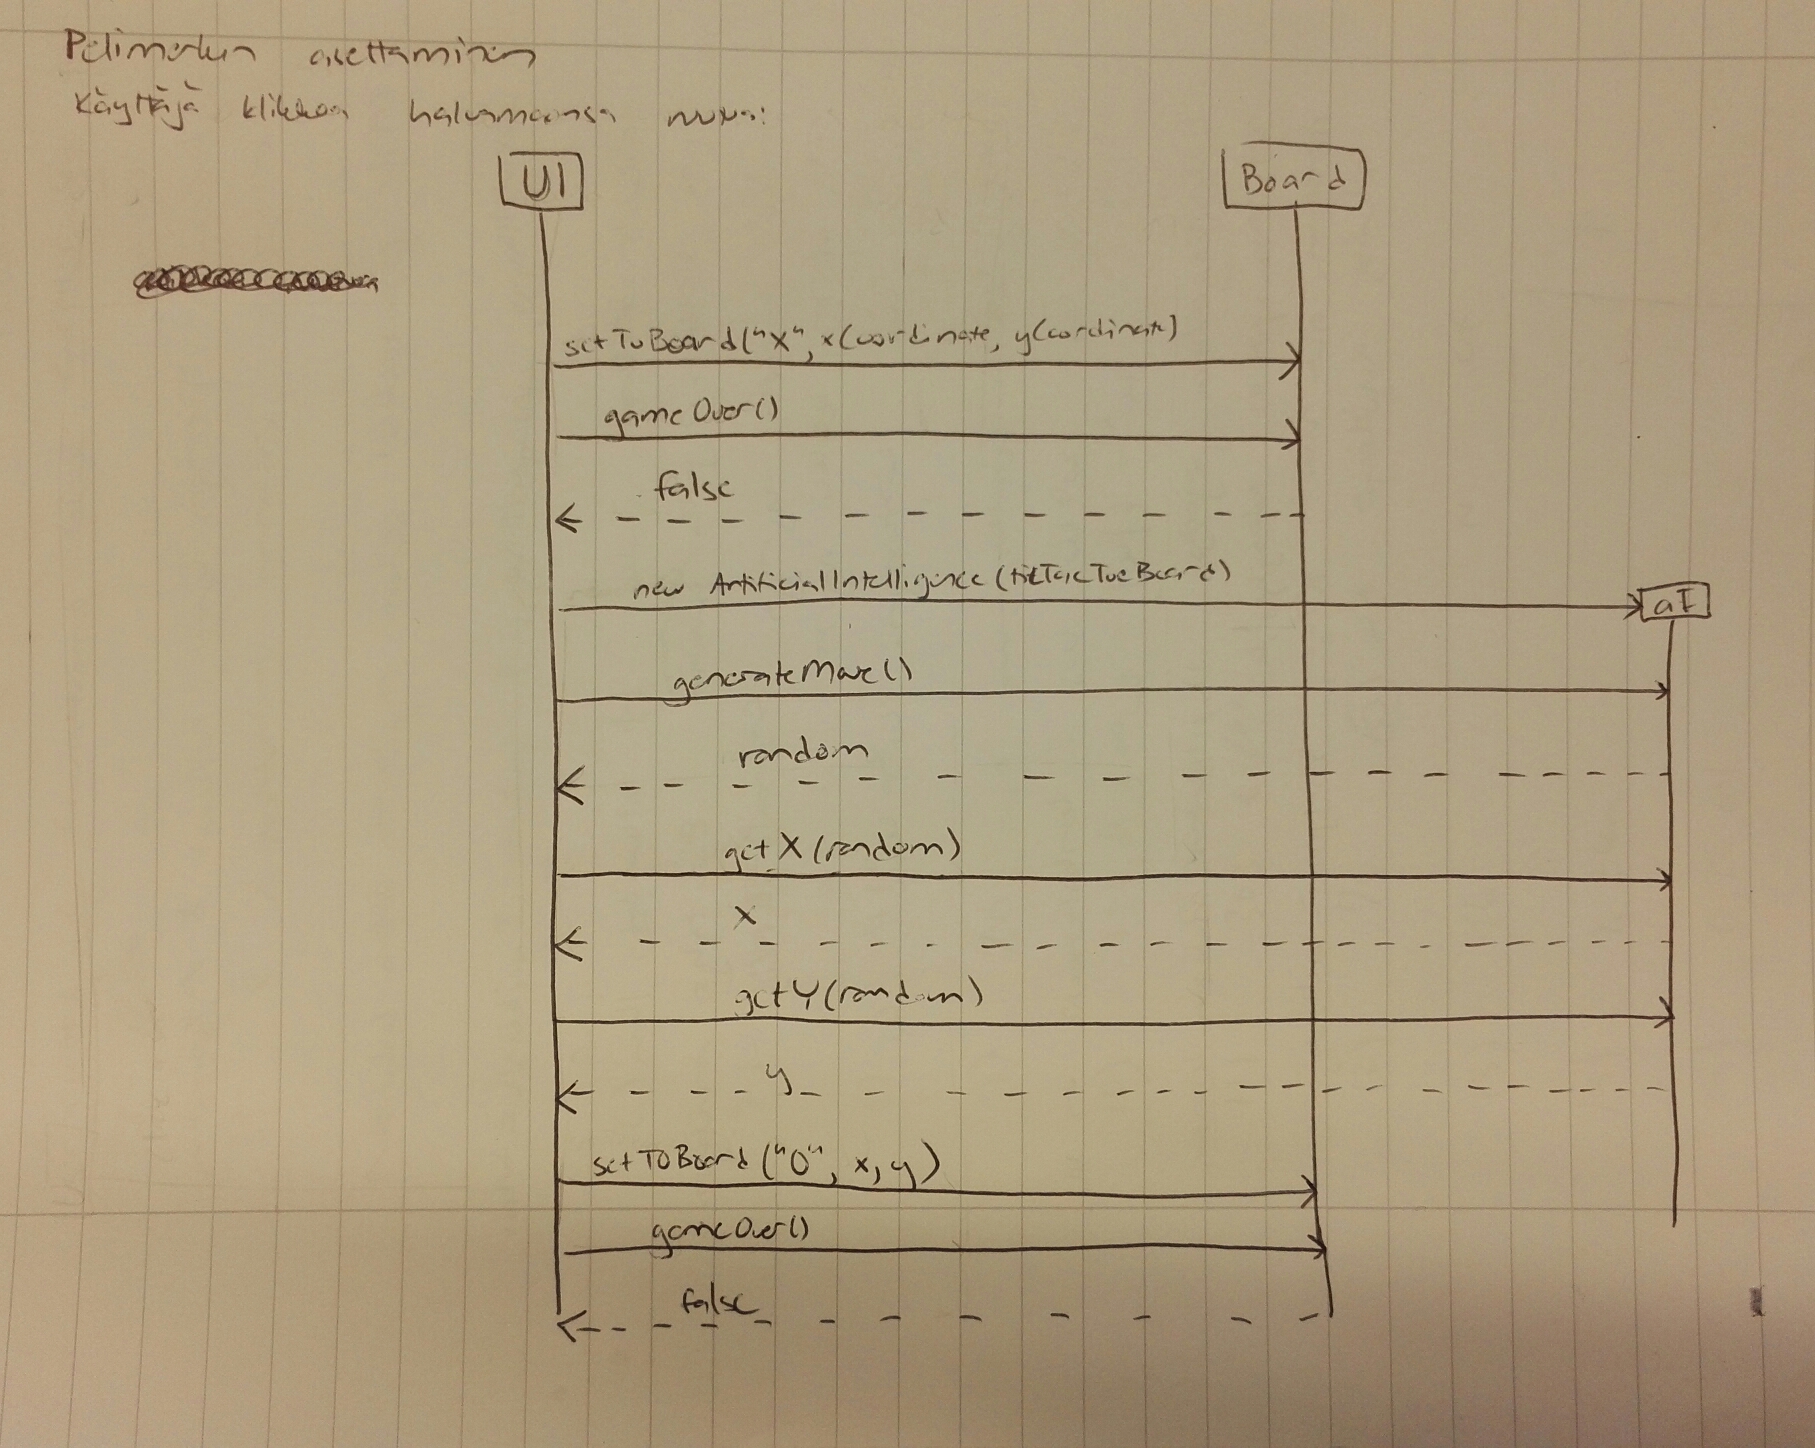 Pelimerkin asettaminen
Käyttäjä klikkaa haluamaansa ruutua:
UI
Board
setToBoard("X", xCoordinate, yCoordinate)
gameOver()
false
new ArtificialIntelligence(ticTacToeBoard)
aI
generateMove()
random
getX(random)
x
getY(random)
y
setToBoard("O", x, y)
gameOver()
false